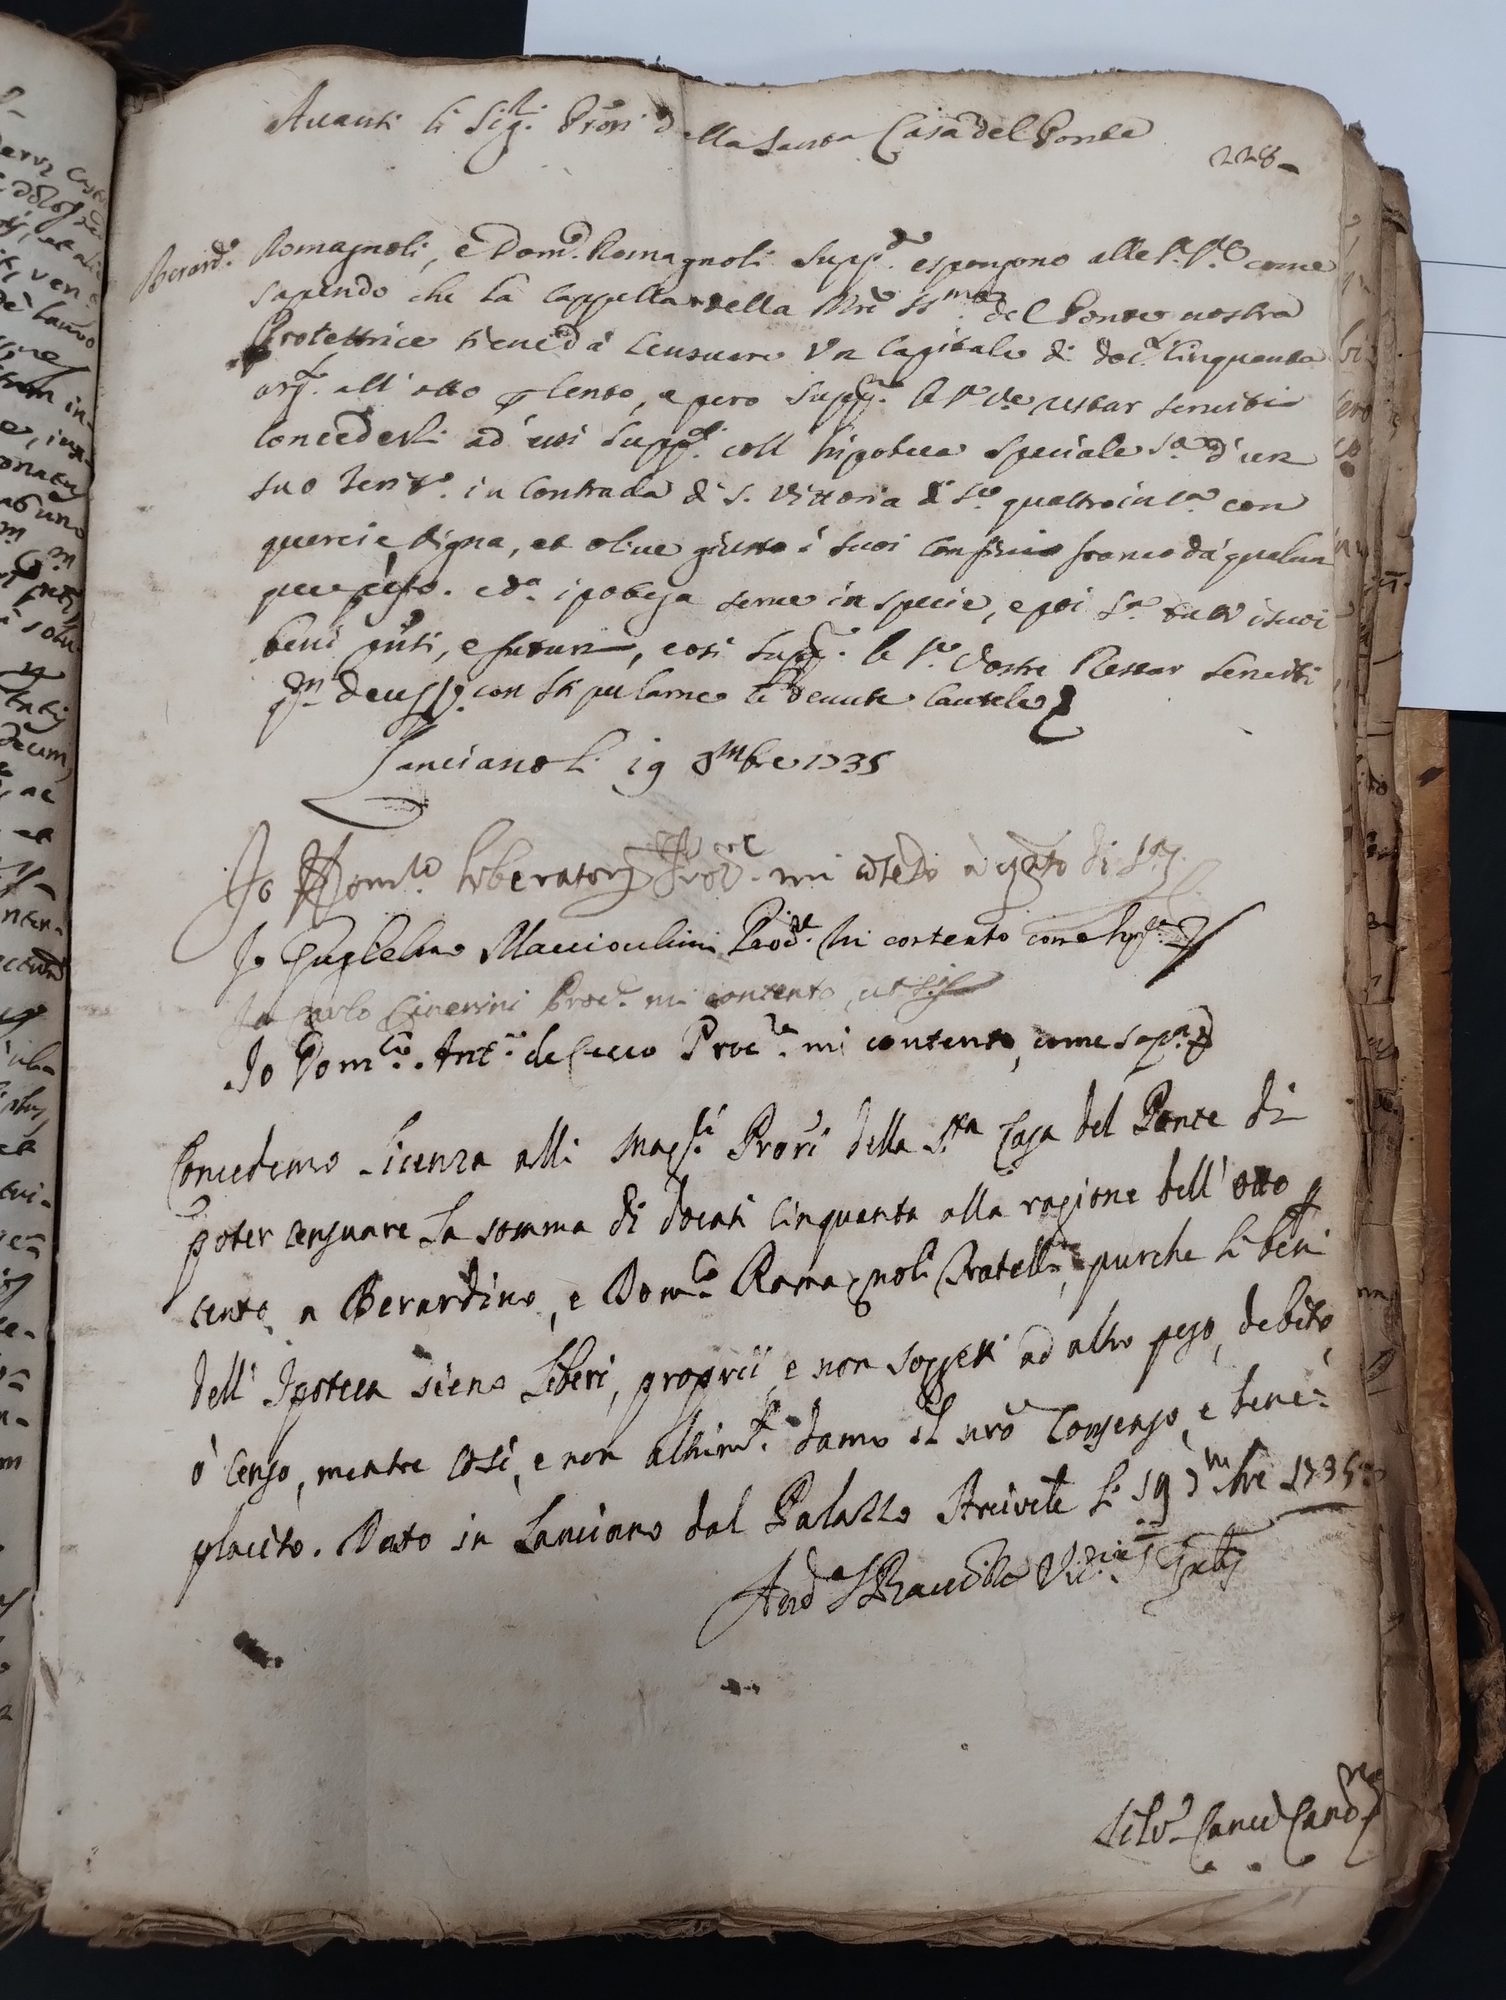 Auanti li Sig.ri Prori della Santa Casa del Ponte
228
Berard.o Romagnoli, e Dom.co Romagnoli supp.ti espongono alle S.e V.e come
sapendo che la Cappella della Mre SS.ma del Ponte nostra
Protettrice tiene da Censuare un Capitale di doc.ti Cinquanta
all'otto p Cento, e pero supp.no le S.e V.e restar servite
Concederli ad essi supp.ti coll' hipoteca speciale s.a d'un
suo Territ.o in Contrada di S. Vittoria di con
querci e vigna, et olive giusto i suoi confini franco da qualun
que peso. ed.a ipoteca serve in specie, e poi s.a tutti i suoi
beni pnti, e futuri, cosi supp.no le S.e Vostre Restar servite
con stipularne le devute Cautele
Lanciano li 19 9mbre 1735
Io Dom.co Liberatore Proc.re mi cōtēto
Io Guglielmo Maccioculini Proc.re mi contento come sop.a
Io Carlo Ciuerini Proc.re mi contento, ut s.a
Io Dom.co Ant.o de Cecco Proc.re mi contento, come sop.a
Concedemo Licenza alli Mag.ci Prori della S.ta Casa del Ponte di
poter censuare la somma di docati Cinquanta alla ragione dell'otto p
cento, a Berardino, e Dom.co Romagnoli Fratelli, purche li beni
dell'Ipoteca sieno liberi, proprii e non soggetti ad altro peso, debito,
ò Censo, mentre così, e non altrim.te damo il nrõ Consenso, e bene-
placito. Dato in Lanciano dal Palazzo Arcivele li 19 9mbre 1735
Vic.o
Silv.o Canc.